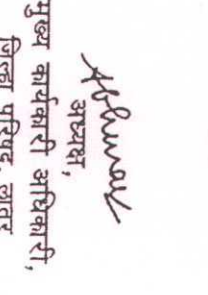 Abhinav
अध्यक्ष,
मुख्य कार्यकारी अधिकारी,
जिल्हा परिषद, लातूर